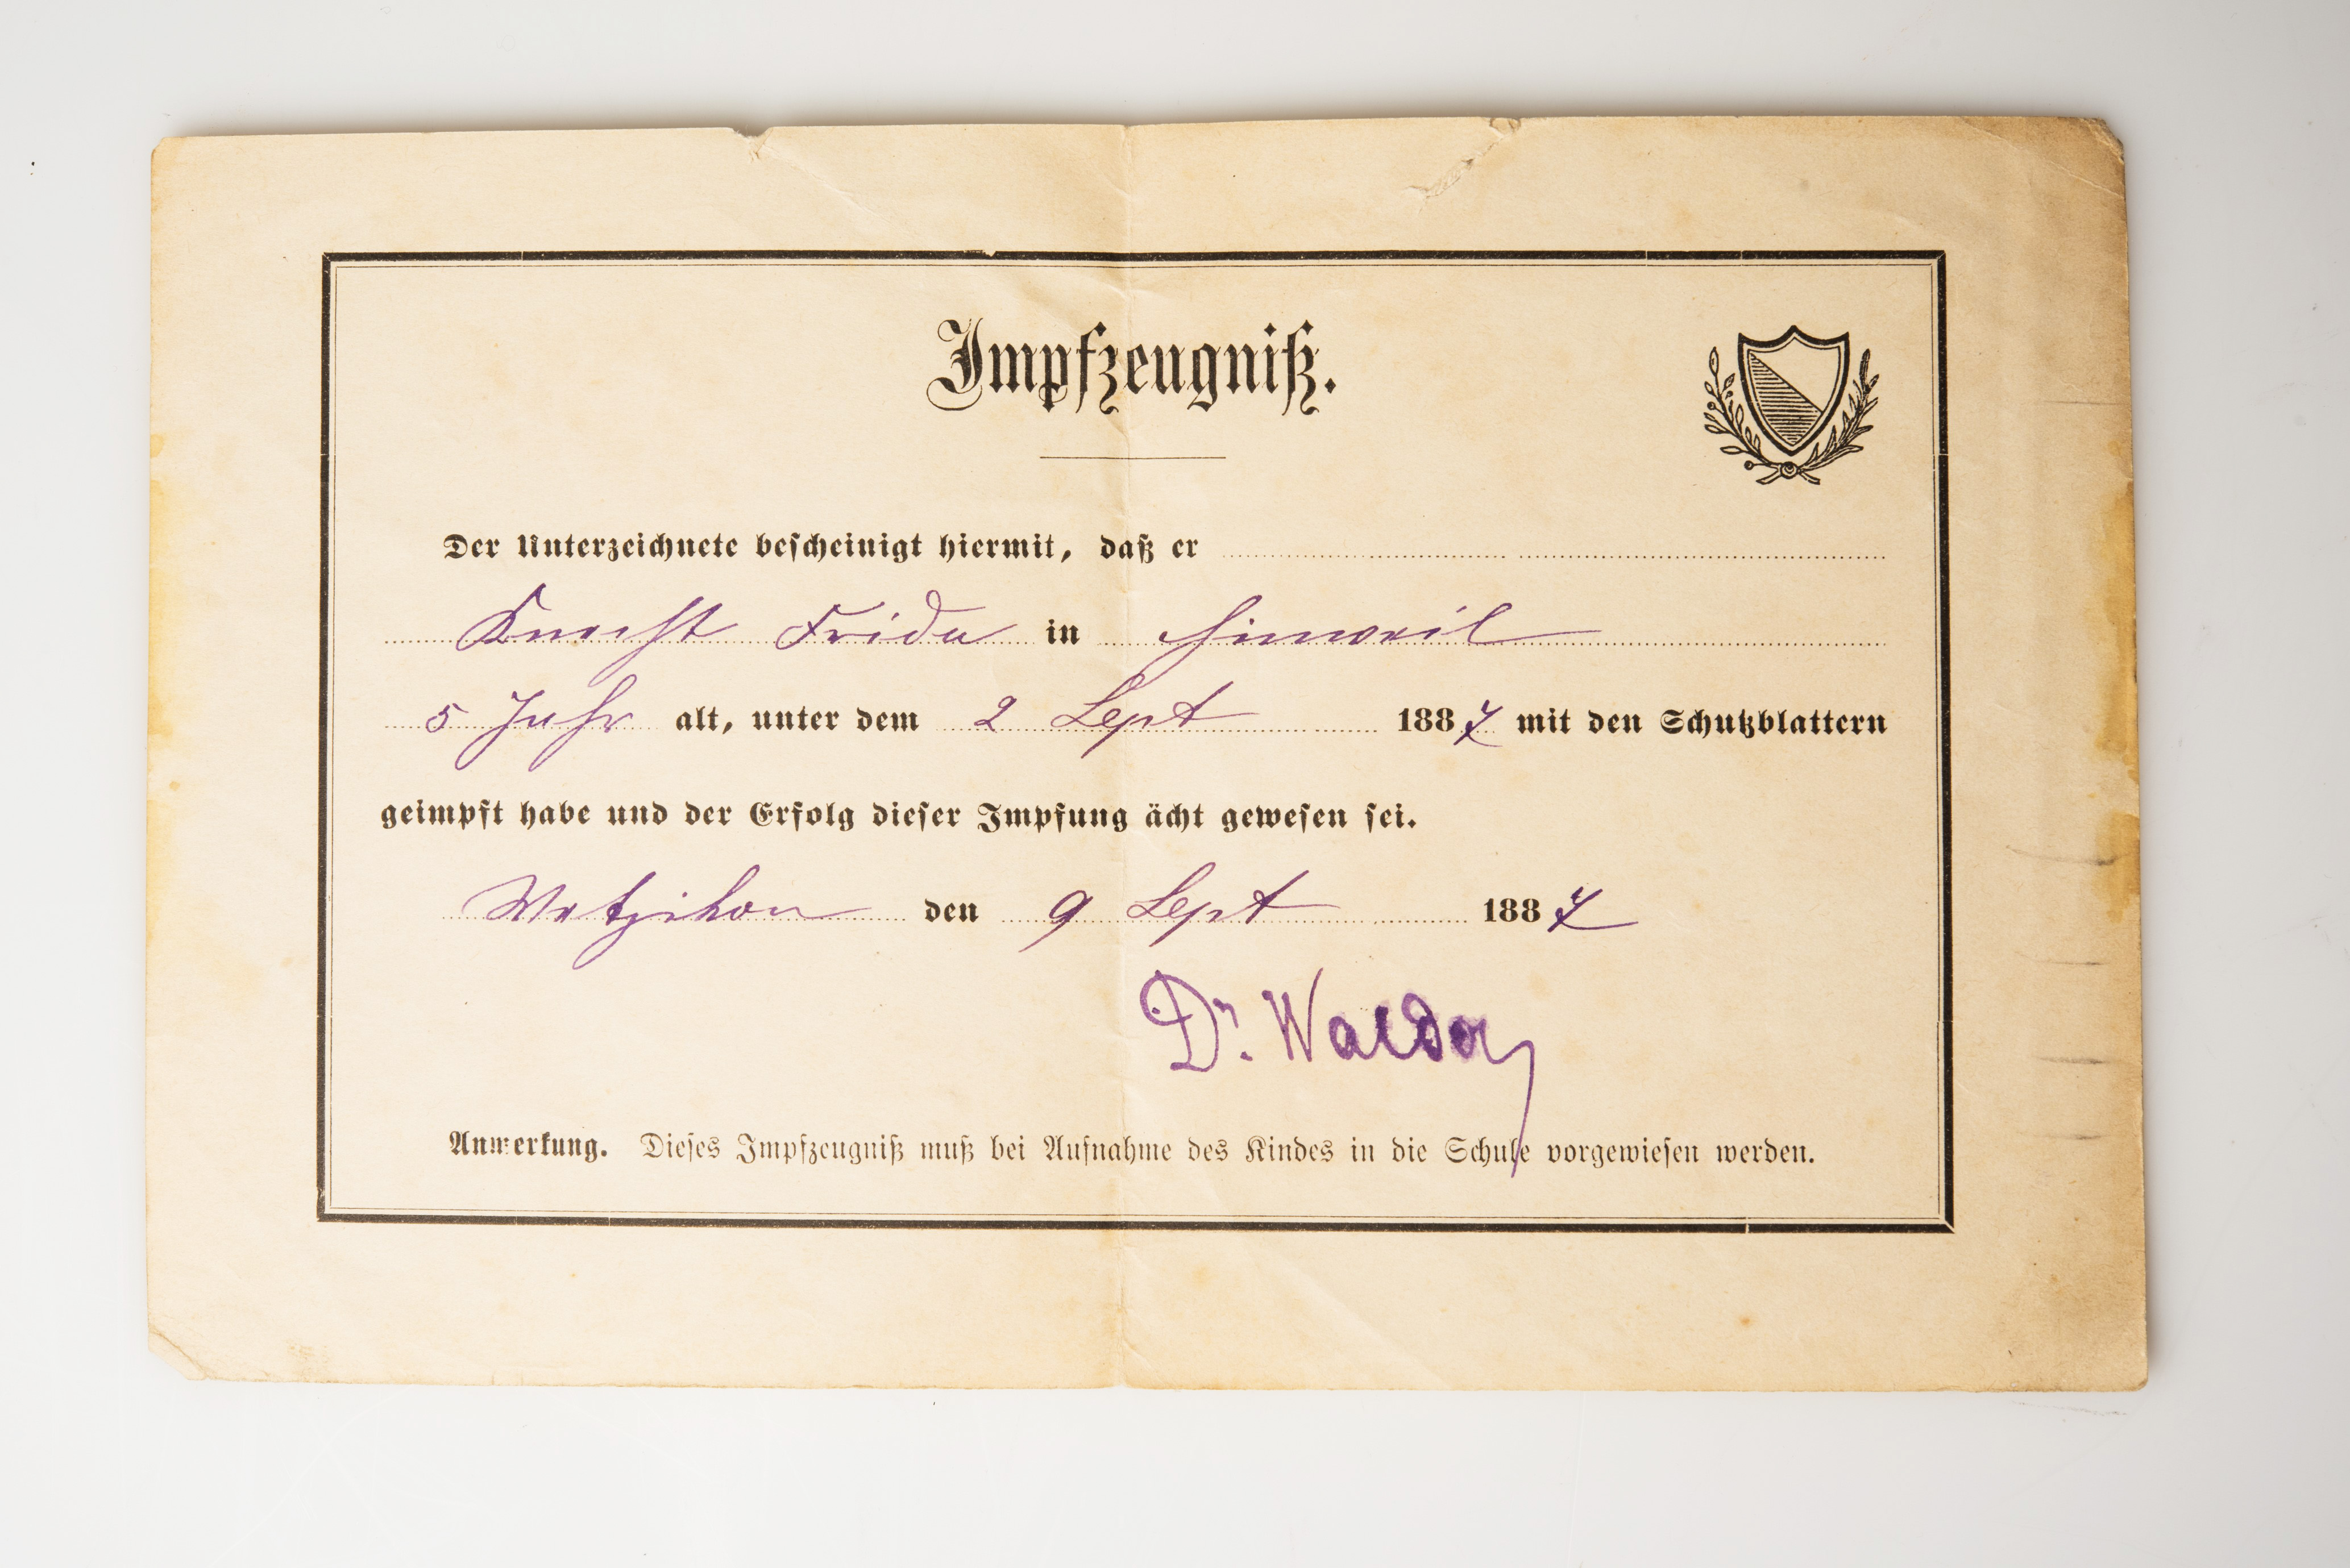 Impfzeugniß.
Der Unterzeichnete bescheinigt hiermit, daß er
Knecht Frida in Hinweil
5 Jahr alt, unter dem 2 Sept 1887 mit den Schutzblattern
geimpft habe und der Erfolg dieser Impfung ächt gewesen sei.
Wetzikon den 9 Sept 1887
Dr. Walder
Anmerkung. Dieses Impfzeugniß muß bei Aufnahme des Kindes in die Schule vorgewiesen werden.